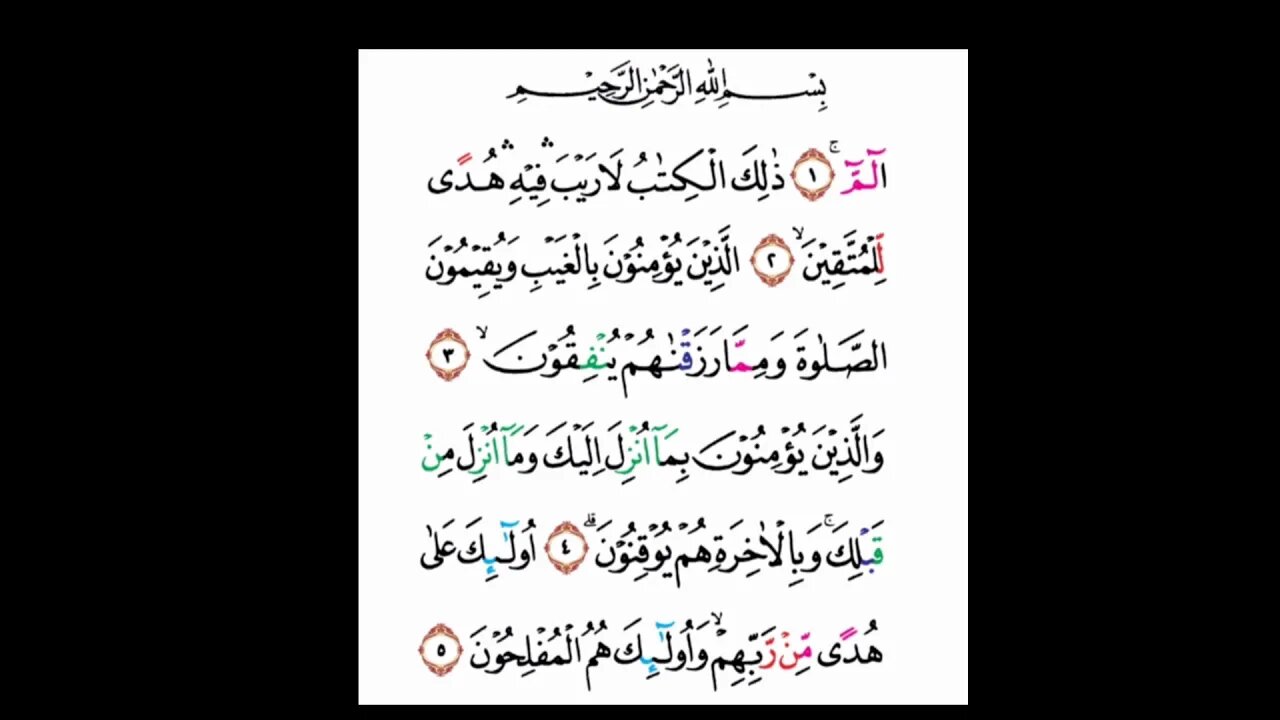 بِسْمِ اللّٰهِ الرَّحْمٰنِ الرَّحِيْمِ
الٓمّٓ ۚ ١ ذٰلِكَ الْكِتٰبُ لَا رَيْبَ ۛ فِيْهِ ۛ هُدًى
لِّلْمُتَّقِيْنَ ۙ ٢ الَّذِيْنَ يُؤْمِنُوْنَ بِالْغَيْبِ وَيُقِيْمُوْنَ
الصَّلٰوةَ وَمِمَّا رَزَقْنٰهُمْ يُنْفِقُوْنَ ۙ ٣
وَالَّذِيْنَ يُؤْمِنُوْنَ بِمَآ اُنْزِلَ اِلَيْكَ وَمَآ اُنْزِلَ مِنْ
قَبْلِكَ ۚ وَبِالْاٰخِرَةِ هُمْ يُوْقِنُوْنَ ۗ ٤ اُولٰۤىِٕكَ عَلٰى
هُدًى مِّنْ رَّبِّهِمْ ۙ وَاُولٰۤىِٕكَ هُمُ الْمُفْلِحُوْنَ ٥